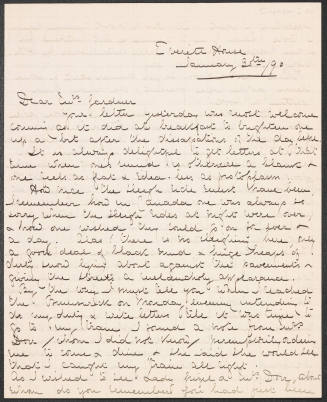 Everett House
January 20th/90
Dear Mrs Gardner
Your letter yesterday was most welcome
coming as it did at breakfast to brighten one
up a bit after the dissipations of the day before
It is always delightful to get letters but
time when one's mind is otherwise a blank &
one feels as flat & idea-less as protoplasm
How nice the sleigh ride must have been
I remember how in Canada one was always so
sorry when the sleigh rides at night were over,
& how one wished they could go on for ever &
a day. Alas! there is no sleighing here, only
a good deal of black mud & huge heaps of
dirty snow lying about against the pavements
giving the streets a melancholy appearance.
By the way I must tell you when I reached
the Brunswick on Monday evening intending to
do my duty & write letters till it was time to
go to my train I found a note from Mrs
Dorr, whom I did not know, peremptorily order-
ing me to come & dine & she said she would see
that I caught my train all right.
As I wished to see Lady & Mrs Dorr, about
whom do you remember you had just been